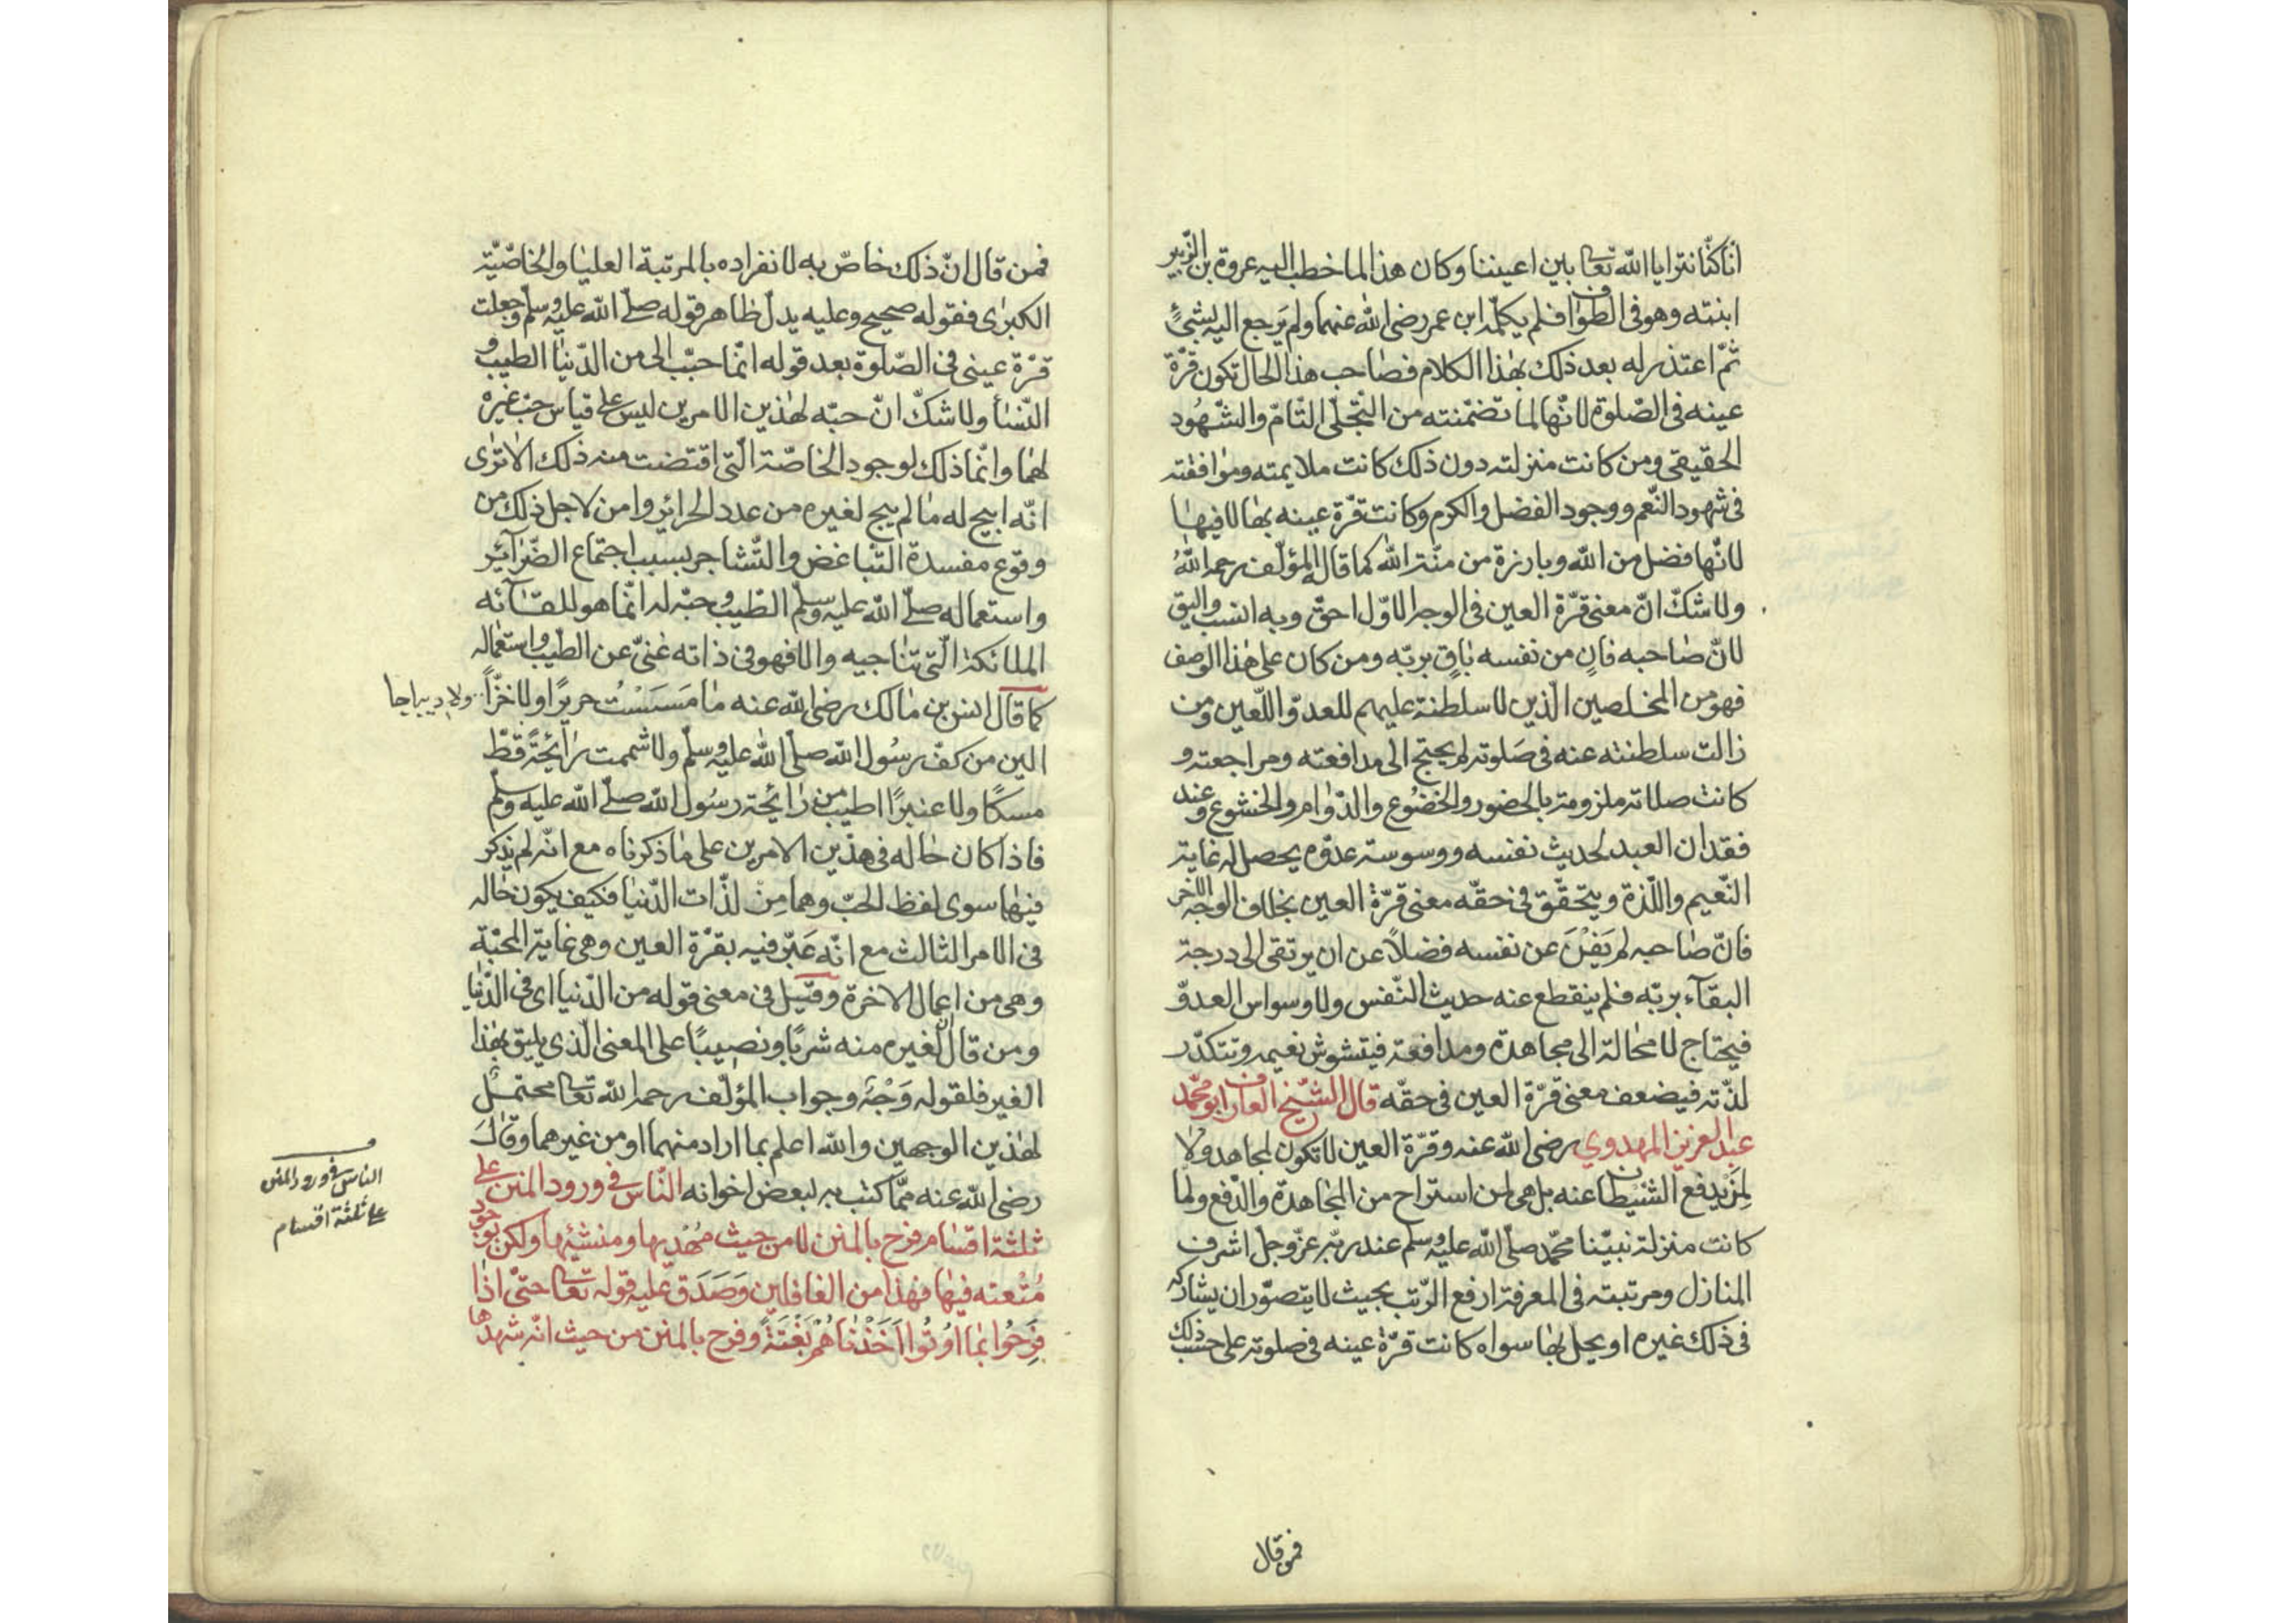 انا كنّا نترايا الله تعالى بين اعيننا وكان هذا لما خطب اليه عروة بن الزّبير
ابنته وهو في الطواف فلم يكلّمه ابن عمر رضي الله عنهما ولم يرجع اليه بشئٍ
ثمّ اعتذر له بعد ذلك بهذا الكلام فصاحب هذا الحال تكون قرّة
عينه في الصّلوة لانّها لما تضمّنته من التّجلّي التّامّ والشّهُود
الحقيقي ومن كانت منزلته دون ذلك كانت ملايمته وموافقته
في شهود النّعم ووجود الفضل والكرم وكانت قرّة عينه بها لا فيها
لانّها فضل من الله وبارزة من منّة الله كما قال المؤلّف رحمه اللهُ
ولا شكّ انّ معنى قرّة العين في الوجه الاوّل احقّ وبه انسب واليق
لانّ صاحبه فانٍ من نفسه باقٍ بربّه ومن كان على هذا الوصف
فهو من المخلصين الّذين لا سلطنة عليهم للعدوّ اللّعين ومن
زالت سلطنته عنه في صَلوته لم يحتج الى مدافعته ومراجعته و
كانت صلاته ملزومة بالحضور والخضُوع والدّوام والخشوع وعند
فقدان العبد لحديث نفسه ووسوسة عدوّه يحصل له غاية
النّعيم واللّذة ويتحقّق في حقّه معنى قرّة العين بخلاف الوجه الاخر
فانّ صاحبه لم يَفْنَ عن نفسه فضلاً عن ان يرتقى الى درجة
البقآء بربّه فلم ينقطع عنه حديث النّفس ولا وسواس العدوّ
فيحتاج لا محالة الى مجاهدة ومدافعة فيتشوش نعيمه وتتكدّر
لذّته فيضعف معنى قرّة العين في حقّه قال الشّيخ العارف ابو محمّد
عبد العزيز المهدوي رضي الله عنه وقرّة العين لا تكون لمجاهد ولا
لمن يدفع الشيطان عنه بل هي لمن استراح من المجاهدة والدّفع ولما
كانت منزلة نبيّنا محمّد صلّى الله عليه وسلم عند ربّه عزّ وجل اشرف
المنازل ومرتبته في المعرفة ارفع الرّتب بحيث لا يتصوّر ان يشاركه
في ذلك غيره او يحل بها سواه كانت قرّة عينه في صلوته على حسب ذلك
فمن قال
فمن قال انّ ذلك خاصّ به لانفراده بالمرتبة العليا والخاصّيّة
الكبرٰى فقوله صحيح وعليه يدلّ ظاهر قوله صلّى الله عليه وسلّم وجعلت
قرّة عيني في الصّلوة بعد قوله انّما حبّب الى من الدّنيا الطيب و
النّسآء ولا شكّ انّ حبّه لهٰذين الامرين ليس على قياس حبّ غيره
لهما وانّما ذلك لوجود الخاصّة الّتي اقتضت منه ذلك الا ترٰى
انّه ابيح له ما لم يبح لغيره من عدد الحرائر وامن لاجل ذلك من
وقوع مفسدة التّباغض والتّشاجر بسبب اجتماع الضّرآئر
واستعماله صلّى الله عليه وسلم الطّيب وحبّه له انّما هو للقآئه
الملائكة الّتي تناجيه والا فهو في ذاته غنىّ عن الطيب واستعماله
كما قال انس بن مالك رضي الله عنه ما مَسَسْتُ حريرًا ولا خزًّا ولا ديباجا
الين من كفّ رسُول الله صلّى الله عليه وسلّم ولا شممت رائحةً قطّ
مسكًا ولا عنبرًا اطيب من رائحة رسُول الله صلّى الله عليه وسلّم
فاذا كان حاله في هذين الامرين على ما ذكرناه مع انّه لم يذكر
فيهما سوى لفظ الحبّ وهما مِنْ لذّات الدّنيا فكيف يكون حاله
في الامر الثالث مع انّه عَبّر فيه بقرّة العين وهي غاية المحبّة
وهي من اعمال الاخرة وقيل في معنى قوله من الدّنيا اى في الدّنيا
ومن قال ان لغيره منه شربًا ونصيبًا على المعنى الّذي يليق بهذا
الغير فلقوله وَجْهٌ وجواب المؤلّف رحمه الله تعالى محتملٌ
لهذين الوجهين والله اعلم بما اراد منهما او من غيرهما وقالَ
رضي الله عنه ممّا كتب به لبعض اخوانه النّاس في ورود المنن على
ثلثة اقسام فرح بالمنن لا من حيث مُهْديها ومنشيها ولكن بوجود
مُتْعته فيها فهذا من الغافلين وَصَدَق عليه قوله تعالى حتّى اذا
فَرِحُوا بما اُوتُوا اَخَذْناهُمْ بَغْتَةً وفرح بالمنن من حيث انّه شهدها
الناس في ورود المنن
على ثلثة اقسام